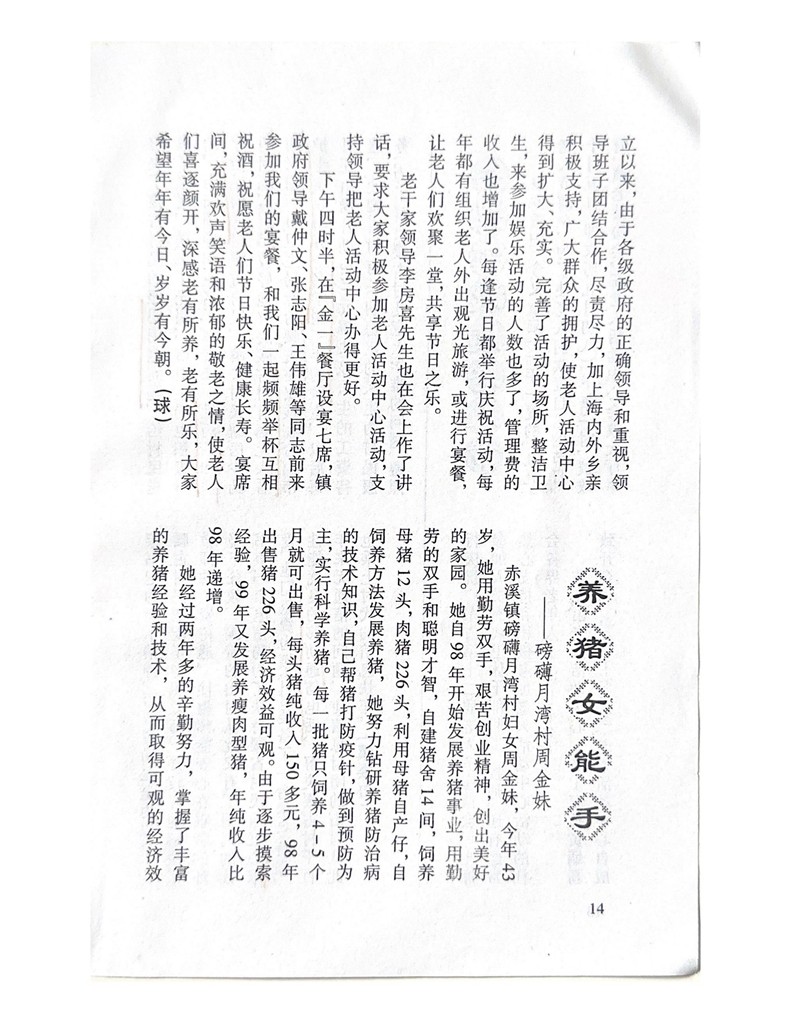 立以来，由于各级政府的正确领导和重视，领
导班子团结合作，尽责尽力，加上海内外乡亲
积极支持，广大群众的拥护，使老人活动中心
得到扩大、充实。完善了活动的场所，整洁卫
生，来参加娱乐活动的人数也多了，管理费的
收入也增加了。每逢节日都举行庆祝活动，每
年都有组织老人外出观光旅游，或进行宴餐，
让老人们欢聚一堂，共享节日之乐。
老干家领导李房喜先生也在会上作了讲
话，要求大家积极参加老人活动中心活动，支
持领导把老人活动中心办得更好。
下午四时半，在『金一』餐厅设宴七席，镇
政府领导戴仲文、张志阳、王伟雄等同志前来
参加我们的宴餐，和我们一起频频举杯互相
祝酒，祝愿老人们节日快乐、健康长寿。宴席
间，充满欢声笑语和浓郁的敬老之情，使老人
们喜逐颜开，深感老有所养，老有所乐，大家
希望年年有今日、岁岁有今朝。（球）
养猪女能手
——磅礴月湾村周金妹
赤溪镇磅礴月湾村妇女周金妹，今年43
岁，她用勤劳双手，艰苦创业精神，创出美好
的家园。她自98年开始发展养猪事业，用勤
劳的双手和聪明才智，自建猪舍14间，饲养
母猪12头，肉猪226头，利用母猪自产仔，自
饲养方法发展养猪，她努力钻研养猪防治病
的技术知识，自己帮猪打防疫针，做到预防为
主，实行科学养猪。每一批猪只饲养4-5个
月就可出售，每头猪纯收入150多元，98年
出售猪226头，经济效益可观。由于逐步摸索
经验，99年又发展养瘦肉型猪，年纯收入比
98年递增。
她经过两年多的辛勤努力，掌握了丰富
的养猪经验和技术，从而取得可观的经济效
14